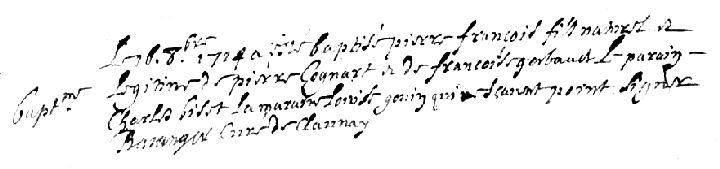 Le 26. 8.bre 1714 a esté baptisé pierre francois fils naturel et
bapt.me legitime de pierre Cognart et de francoise gerbault Le parain
Charles bisst La maraine Louise gouin qui ne scavent point signer
Baranger Curé de Clannay